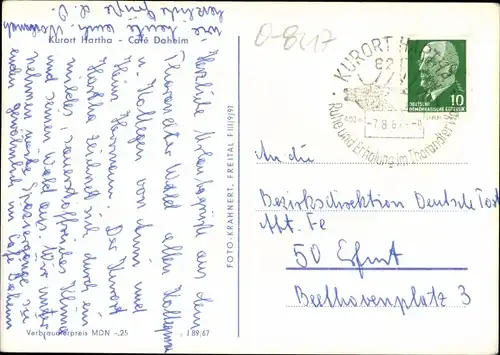 Kurort Hartha - Café Daheim
Herzliche Urlaubsgrüße aus dem
Tharandter Wald allen Kolleginnen
u. Kollegen von Ihrem
Der Kurort
Hartha zeichnet sich durch ein
mildes, sauerstoffreiches Klima
und seinen Wald aus. Wir unter-
nehmen
gewöhnlich im Café Daheim
wie heute auch.
herzliche Grüße
Verbraucherpreis MDN -,25
I 89/67
FOTO-KRAHNERT, FREITAL F III/9/91
O-8217
KURORT
82
7.8.67
Ruhe und Erholung im Tharandter
DEUTSCHE
DEMOKRATISCHE REPUBLIK
10
An die
Bezirksdirektion Deutsche Post
Abt. Fe
50 Erfurt
Beethovenplatz 3